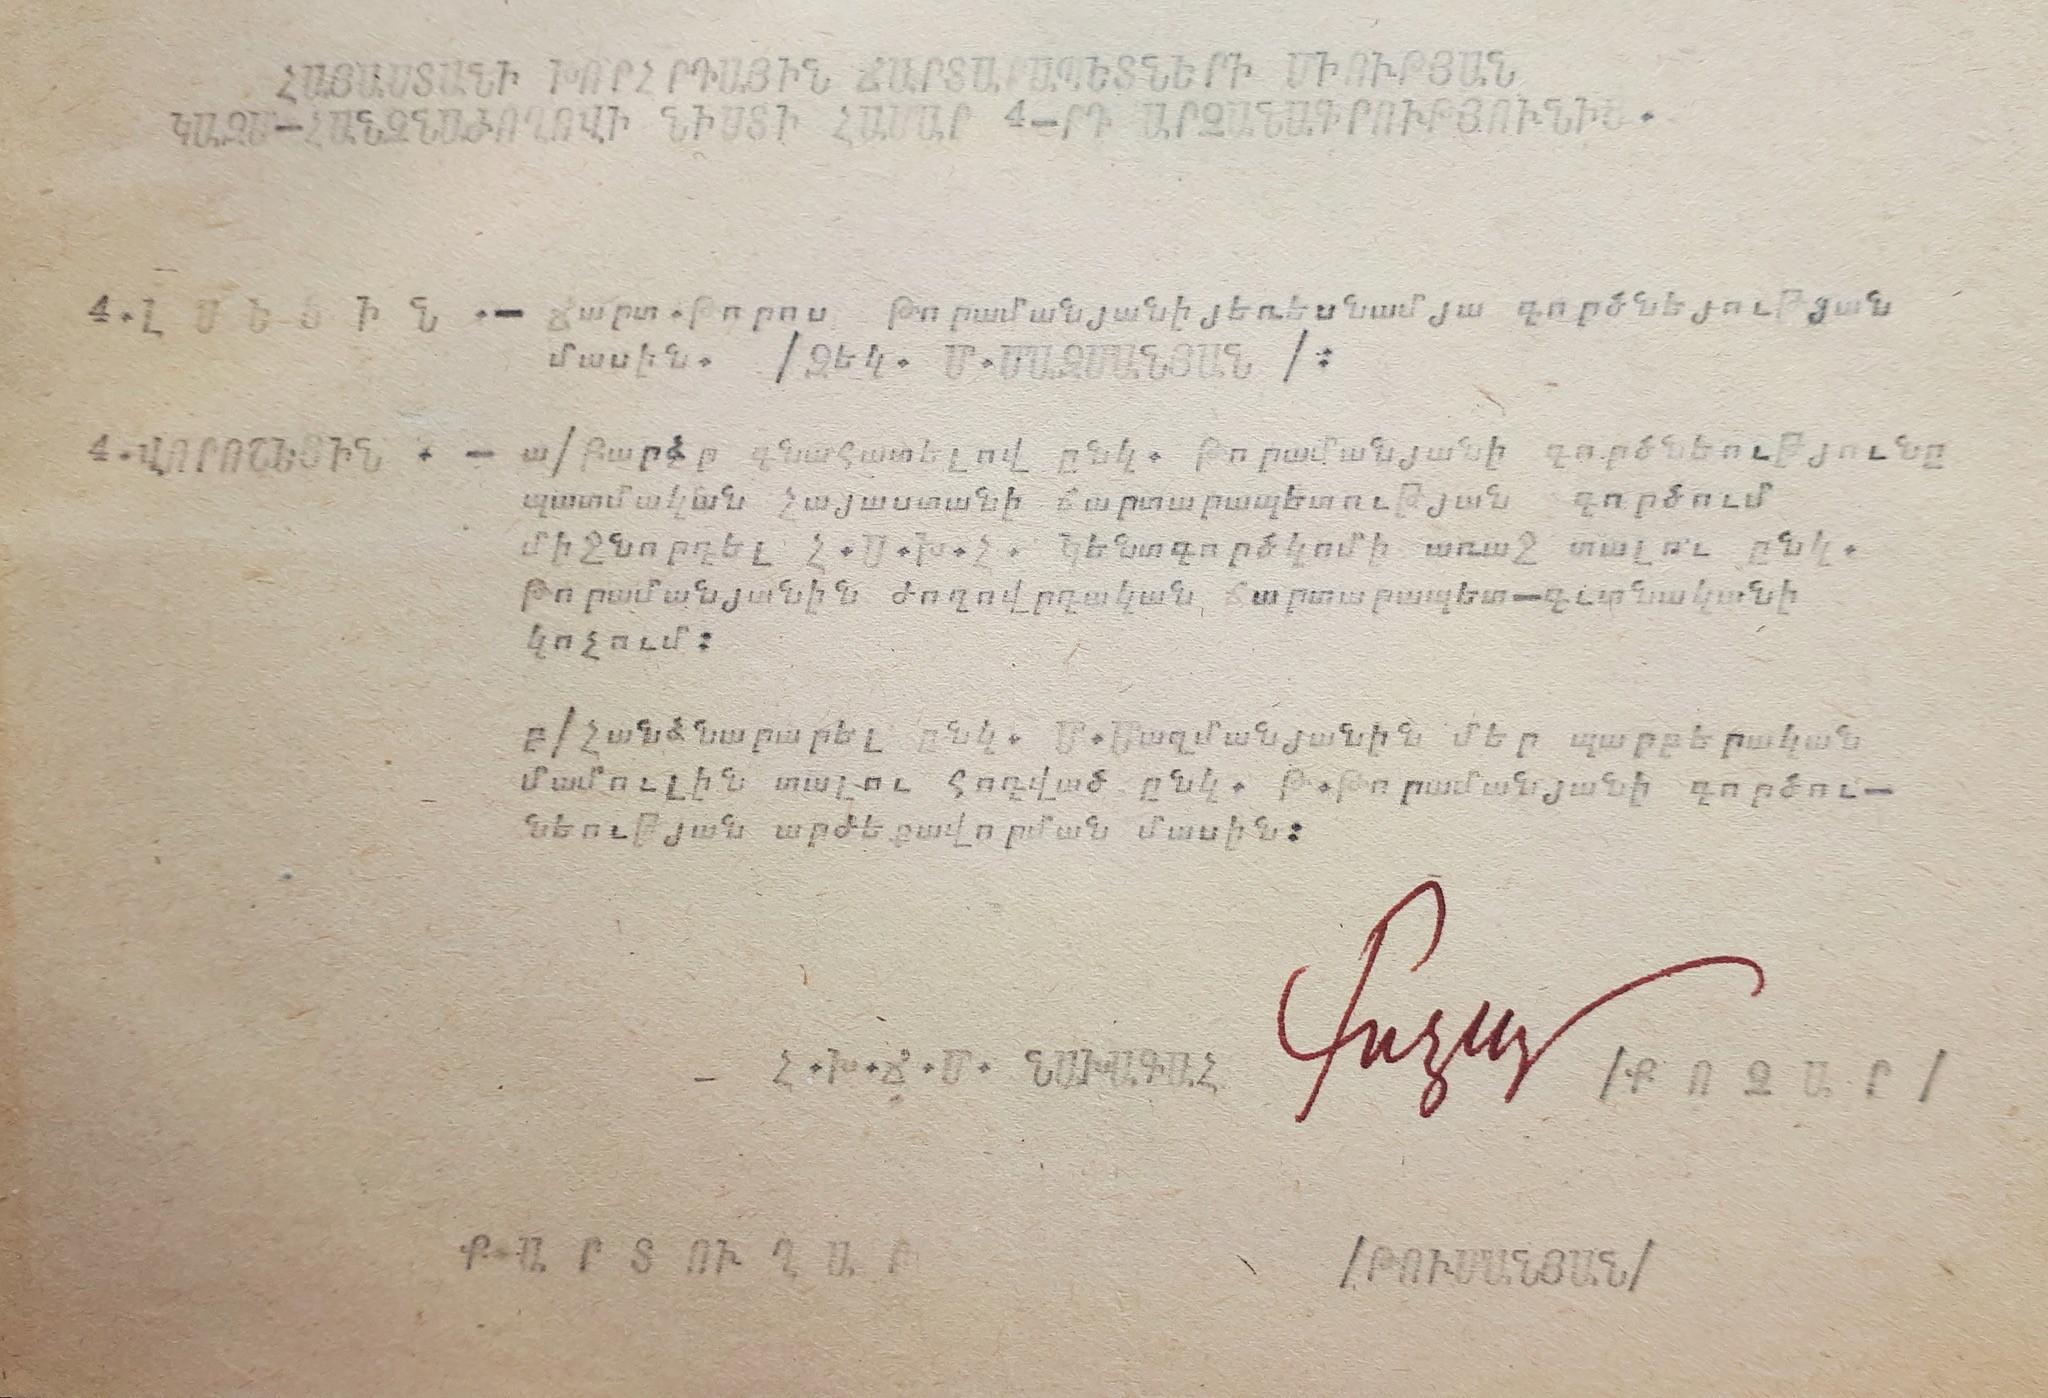 ՀԱՅԱՍՏԱՆԻ ԽՈՐՀՐԴԱՅԻՆ ՃԱՐՏԱՐԱՊԵՏՆԵՐԻ ՄԻՈՒԹՅԱՆ
ԿԱԶՄ-ՀԱՆՁՆԱԺՈՂՈՎԻ ՆԻՍՏԻ ՀԱՄԱՐ 4-ՐԴ ԱՐՁԱՆԱԳՐՈՒԹՅՈՒՆԻՑ.
4.Լ Ս Ե Ց Ի Ն .- ճարտ.Թորոս Թորամանյանի յեռեսնամյա գործնեյության
մասին. /Զեկ. Մ.ՄԱԶՄԱՆՅԱՆ /:
4.ՎՈՐՈՇԵՑԻՆ . - ա/Բարձր գնահատելով ընկ. Թորամանյանի գործնեությունը
պատմական Հայաստանի ճարտարապետության գործում
միջնորդել Հ.Ս.Խ.Հ. Կենտգործկոմի առաջ տալու ընկ.
Թորամանյանին ժողովրդական ճարտարապետ-գիտնականի
կոչում:
բ/Հանձնարարել ընկ. Մ.Մազմանյանին մեր պարբերական
մամուլին տալու հոդված ընկ. Թ.Թորամանյանի գործու-
նեության արժեքավորման մասին:
Հ.Խ.Ճ.Մ. ՆԱԽԱԳԱՀ Քոչար /Ք Ո Չ Ա Ր /
Ք Ա Ր Տ ՈՒ Ղ Ա Ր /ԹՈՒՄԱՆՅԱՆ/